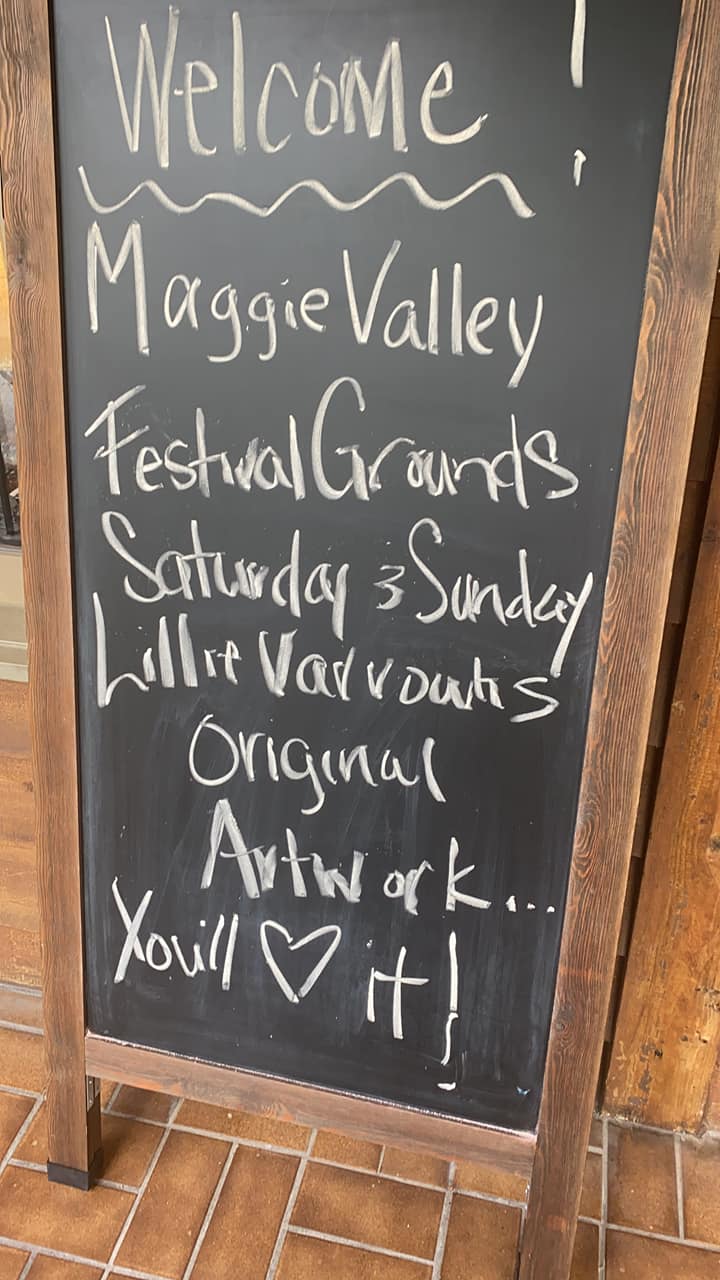 Welcome !
Maggie Valley
Festival Grounds
Saturday & Sunday
Lillie
Original
Artwork...
You'll ♡ it!